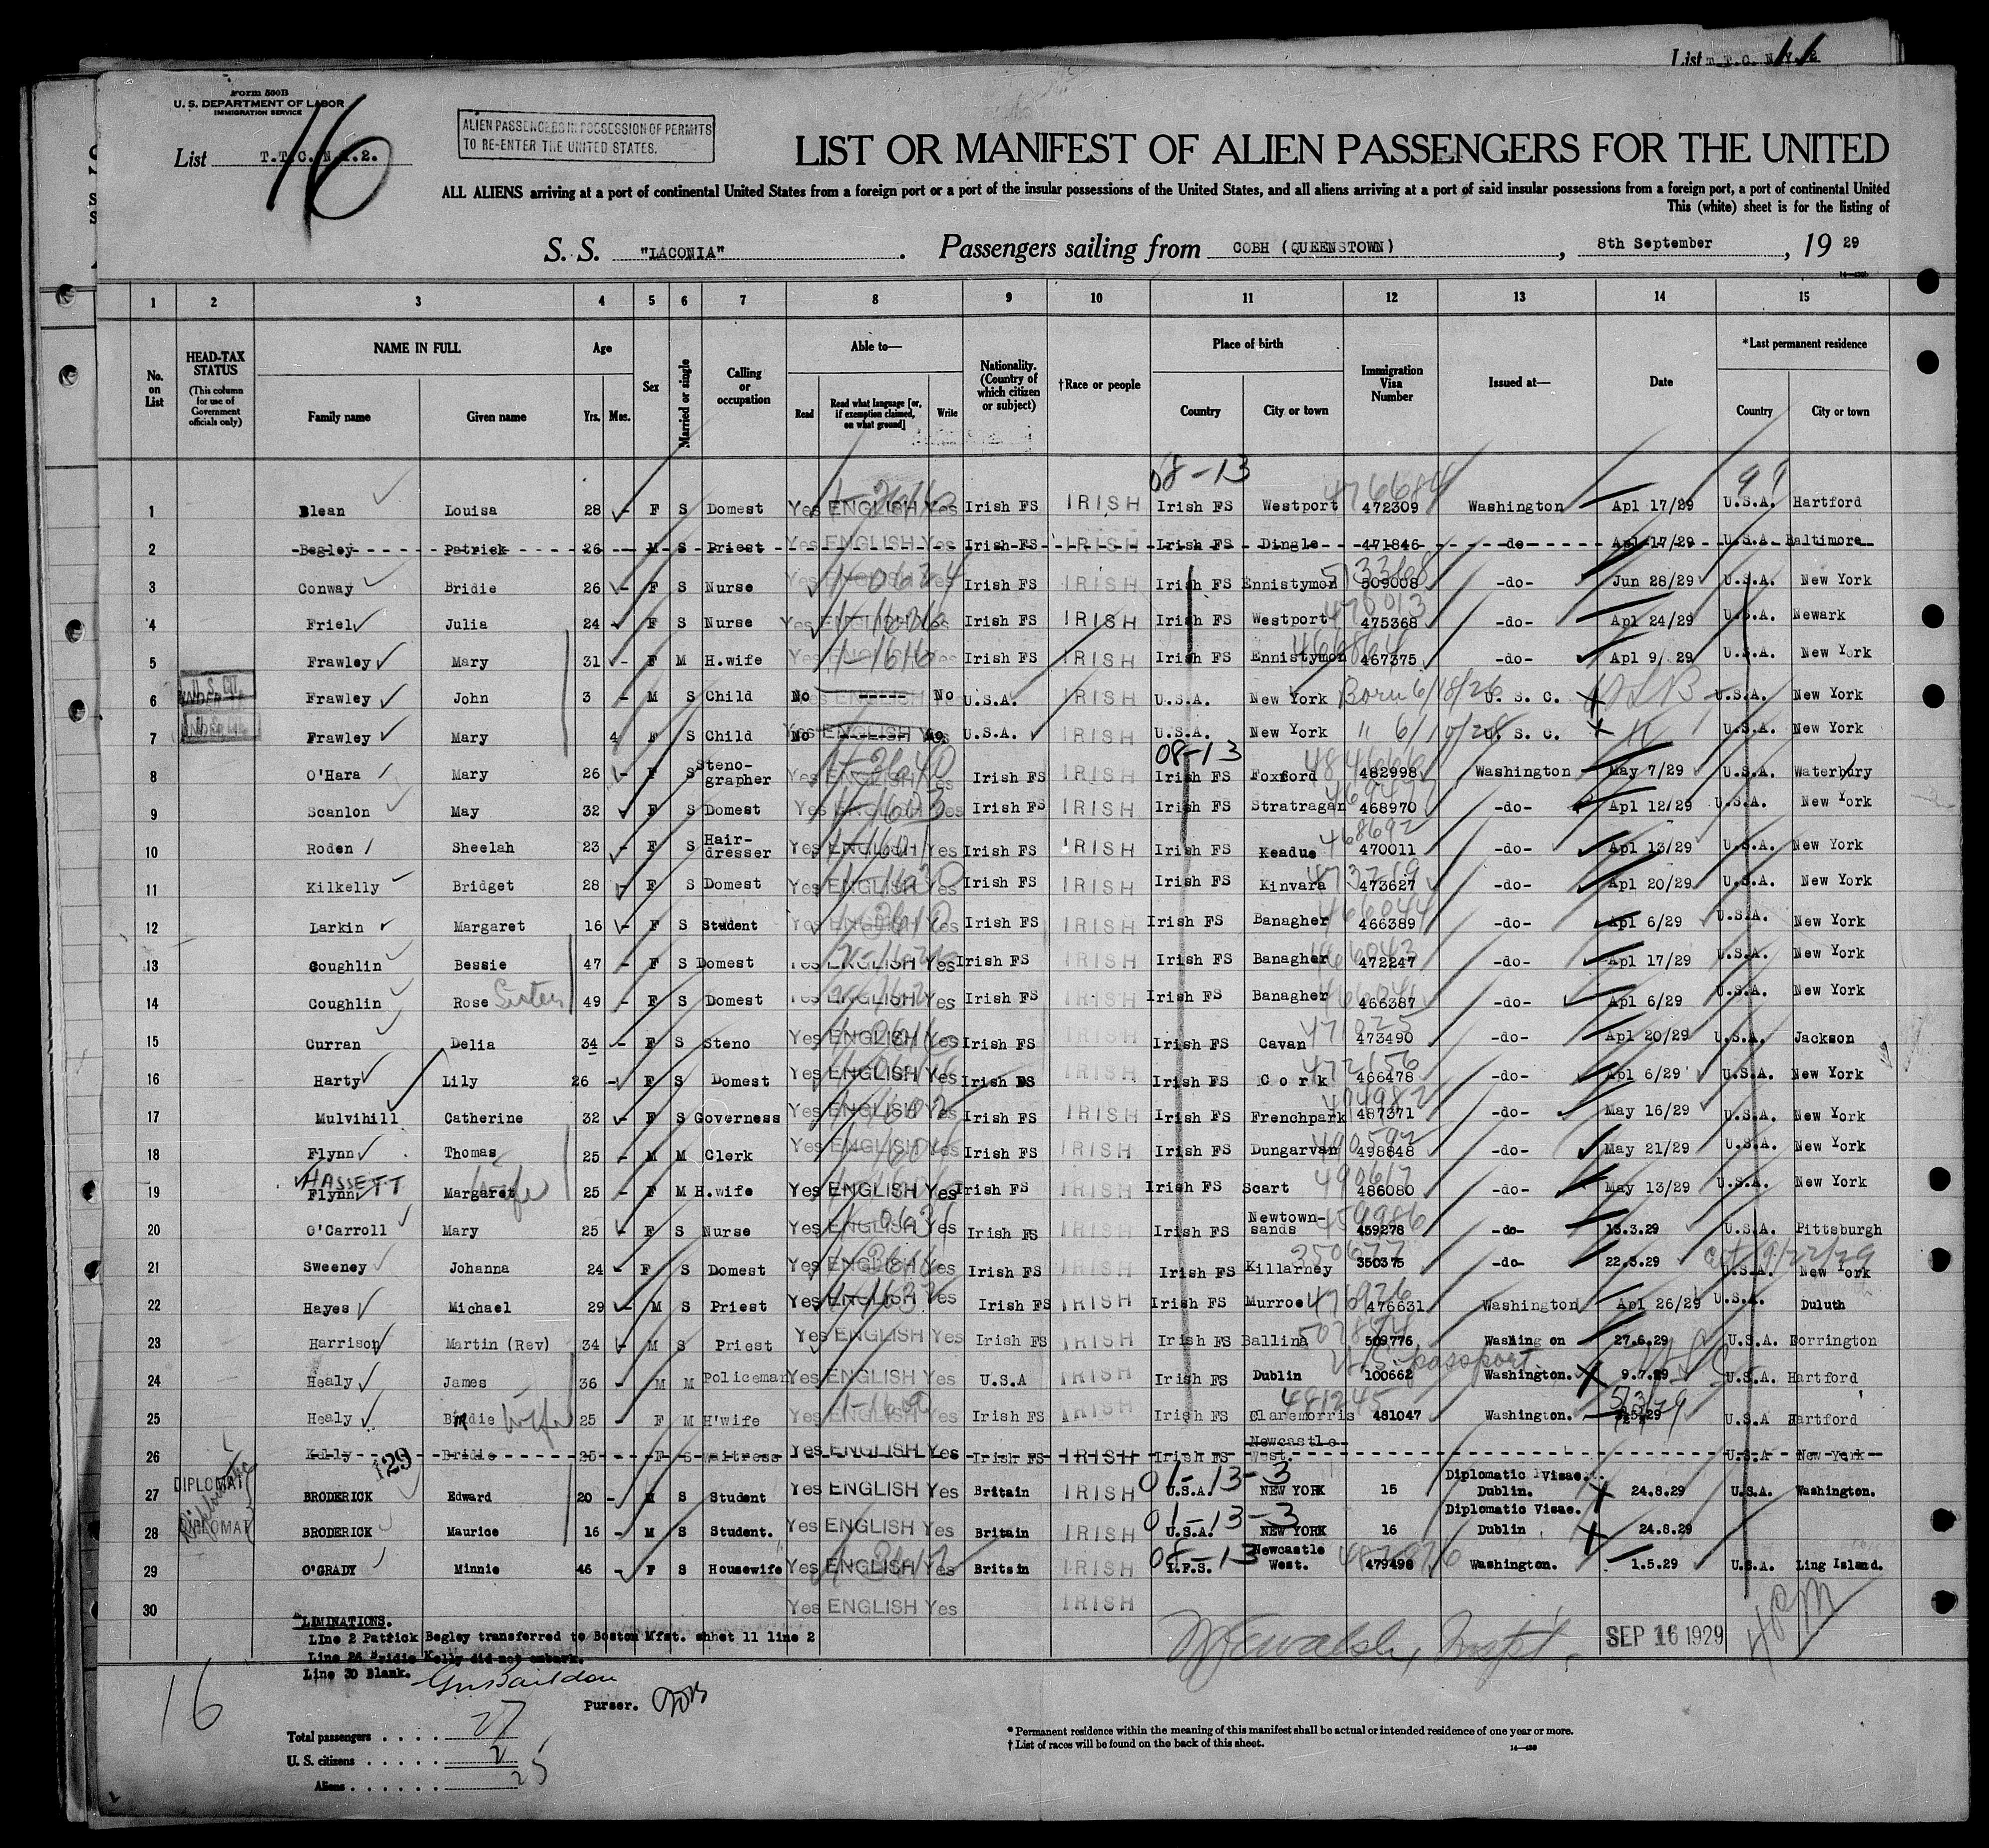 List T.T.C. N.Y. 2
Form 500B
U. S. DEPARTMENT OF LABOR
IMMIGRATION SERVICE
List T.T.C. N.Y.2.
16
ALIEN PASSENGERS IN POSSESSION OF PERMITS
TO RE-ENTER THE UNITED STATES.
LIST OR MANIFEST OF ALIEN PASSENGERS FOR THE UNITED
ALL ALIENS arriving at a port of continental United States from a foreign port or a port of the insular possessions of the United States, and all aliens arriving at a port of said insular possessions from a foreign port, a port of continental United
This (white) sheet is for the listing of
S. S. "LACONIA". Passengers sailing from COBH (QUEENSTOWN), 8th September, 19 29
1 2 3 4 5 6 7 8 9 10 11 12 13 14 15
No. on List
HEAD-TAX STATUS (This column for use of Government officials only)
NAME IN FULL Family name Given name
Age Yrs. Mos.
Sex
Married or single
Calling or occupation
Able to— Read Read what language [or, if exemption claimed, on what ground] Write
Nationality. (Country of which citizen or subject)
†Race or people
Place of birth Country City or town
Immigration Visa Number
Issued at—
Date
*Last permanent residence Country City or town
08-13 99
1 Blean Louisa 28 - F S Domest Yes ENGLISH Yes Irish FS IRISH Irish FS Westport 472309 Washington Apl 17/29 U.S.A. Hartford
2 Begley Patrick 26 M S Priest Yes ENGLISH Yes Irish FS IRISH Irish FS Dingle 471846 -do- Apl 17/29 U.S.A. Baltimore
3 Conway Bridie 26 - F S Nurse Yes ENGLISH Yes Irish FS IRISH Irish FS Ennistymon 509008 -do- Jun 28/29 U.S.A. New York
4 Friel Julia 24 - F S Nurse Yes ENGLISH Yes Irish FS IRISH Irish FS Westport 475368 -do- Apl 24/29 U.S.A. Newark
5 Frawley Mary 31 - F M H.wife Yes ENGLISH Yes Irish FS IRISH Irish FS Ennistymon 467375 -do- Apl 9/ 29 U.S.A. New York
6 Frawley John 3 - M S Child No ----- No U.S.A. IRISH U.S.A. New York Born 6/18/26 U. S. C. U.S.A. New York
7 Frawley Mary 4 F S Child No ------ No U.S.A. IRISH U.S.A. New York " 6/10/28 U. S. C. U.S.A. New York
08-13
8 O'Hara Mary 26 - F S Steno-grapher Yes ENGLISH Yes Irish FS IRISH Irish FS Foxford 482998 Washington May 7/29 U.S.A. Waterbury
9 Scanlon May 32 F S Domest Yes ENGLISH Yes Irish FS IRISH Irish FS Stratragan 468970 -do- Apl 12/29 U.S.A. New York
10 Roden Sheelah 23 - F S Hair-dresser Yes ENGLISH Yes Irish FS IRISH Irish FS Keadue 470011 -do- Apl 13/29 U.S.A. New York
11 Kilkelly Bridget 28 - F S Domest Yes ENGLISH Yes Irish FS IRISH Irish FS Kinvara 473627 -do- Apl 20/29 U.S.A. New York
12 Larkin Margaret 16 - F S Student Yes ENGLISH Yes Irish FS IRISH Irish FS Banagher 466389 -do- Apl 6/29 U.S.A. New York
13 Coughlin Bessie 47 - F S Domest Yes ENGLISH Yes Irish FS IRISH Irish FS Banagher 472247 -do- Apl 17/29 U.S.A. New York
14 Coughlin Rose Sister 49 - F S Domest Yes ENGLISH Yes Irish FS IRISH Irish FS Banagher 466387 -do- Apl 6/29 U.S.A. New York
15 Curran Delia 34 - F S Steno Yes ENGLISH Yes Irish FS IRISH Irish FS Cavan 473490 -do- Apl 20/29 U.S.A. Jackson
16 Harty Lily 26 - F S Domest Yes ENGLISH Yes Irish FS IRISH Irish FS Cork 466478 -do- Apl 6/29 U.S.A. New York
17 Mulvihill Catherine 32 - F S Governess Yes ENGLISH Yes Irish FS IRISH Irish FS Frenchpark 487371 -do- May 16/29 U.S.A. New York
18 Flynn Thomas 25 - M M Clerk Yes ENGLISH Yes Irish FS IRISH Irish FS Dungarvan 498848 -do- May 21/29 U.S.A. New York
HASSETT
19 Flynn Margaret wife 25 - F M H.wife Yes ENGLISH Yes Irish FS IRISH Irish FS Scart 486080 -do- May 13/29 U.S.A. New York
20 O'Carroll Mary 25 - F S Nurse Yes ENGLISH Yes Irish FS IRISH Irish FS Newtown-sands 459278 -do- 13.3.29 U.S.A. Pittsburgh
21 Sweeney Johanna 24 - F S Domest Yes ENGLISH Yes Irish FS IRISH Irish FS Killarney 350375 -do- 22.3.29 U.S.A. New York
22 Hayes Michael 29 - M S Priest Yes ENGLISH Yes Irish FS IRISH Irish FS Murroe 476631 Washington Apl 26/29 U.S.A. Duluth
23 Harrison Martin (Rev) 34 - M S Priest Yes ENGLISH Yes Irish FS IRISH Irish FS Ballina 509776 Washing on 27.6.29 U.S.A. Torrington
U.S. passport
24 Healy James 36 - M M Policeman Yes ENGLISH Yes U.S.A IRISH Irish FS Dublin 100662 Washington. 9.7.29 U.S.A. Hartford
25 Healy Birdie wife 25 - F M H'wife Yes ENGLISH Yes Irish FS IRISH Irish FS Claremorris 481047 Washington. U.S.A Hartford
26 Kelly Bridie 25 - F S Waitress Yes ENGLISH Yes Irish FS IRISH Irish FS Newcastle West. U.S.A New York
129
01-13-3
27 DIPLOMAT BRODERICK Edward 20 - M S Student Yes ENGLISH Yes Britain IRISH U.S.A. NEW YORK 15 Diplomatic Visae. Dublin. 24.8.29 U.S.A. Washington.
01-13-3
28 DIPLOMAT BRODERICK Maurice 16 - M S Student. Yes ENGLISH Yes Britain IRISH U.S.A. NEW YORK 16 Diplomatic Visae. Dublin 24.8.29
08-13
29 O'GRADY Minnie 46 - F S Housewife Yes ENGLISH Yes Britain IRISH I.F.S. Newcastle West. 479498 Washington. 1.5.29 U.S.A. Ling Island.
30 Yes ENGLISH Yes IRISH
LIMINATIONS.
LIne 2 Patrick Begley transferred to Boston Mfst. shhet 11 line 2
Line 26 Bridie Kelly did not embark.
Line 30 Blank.
SEP 16 1929
16
Purser.
Total passengers . . . . 27
U. S. citizens . . . . 2
Aliens . . . . . . 25
* Permanent residence within the meaning of this manifest shall be actual or intended residence of one year or more.
† List of races will be found on the back of this sheet.